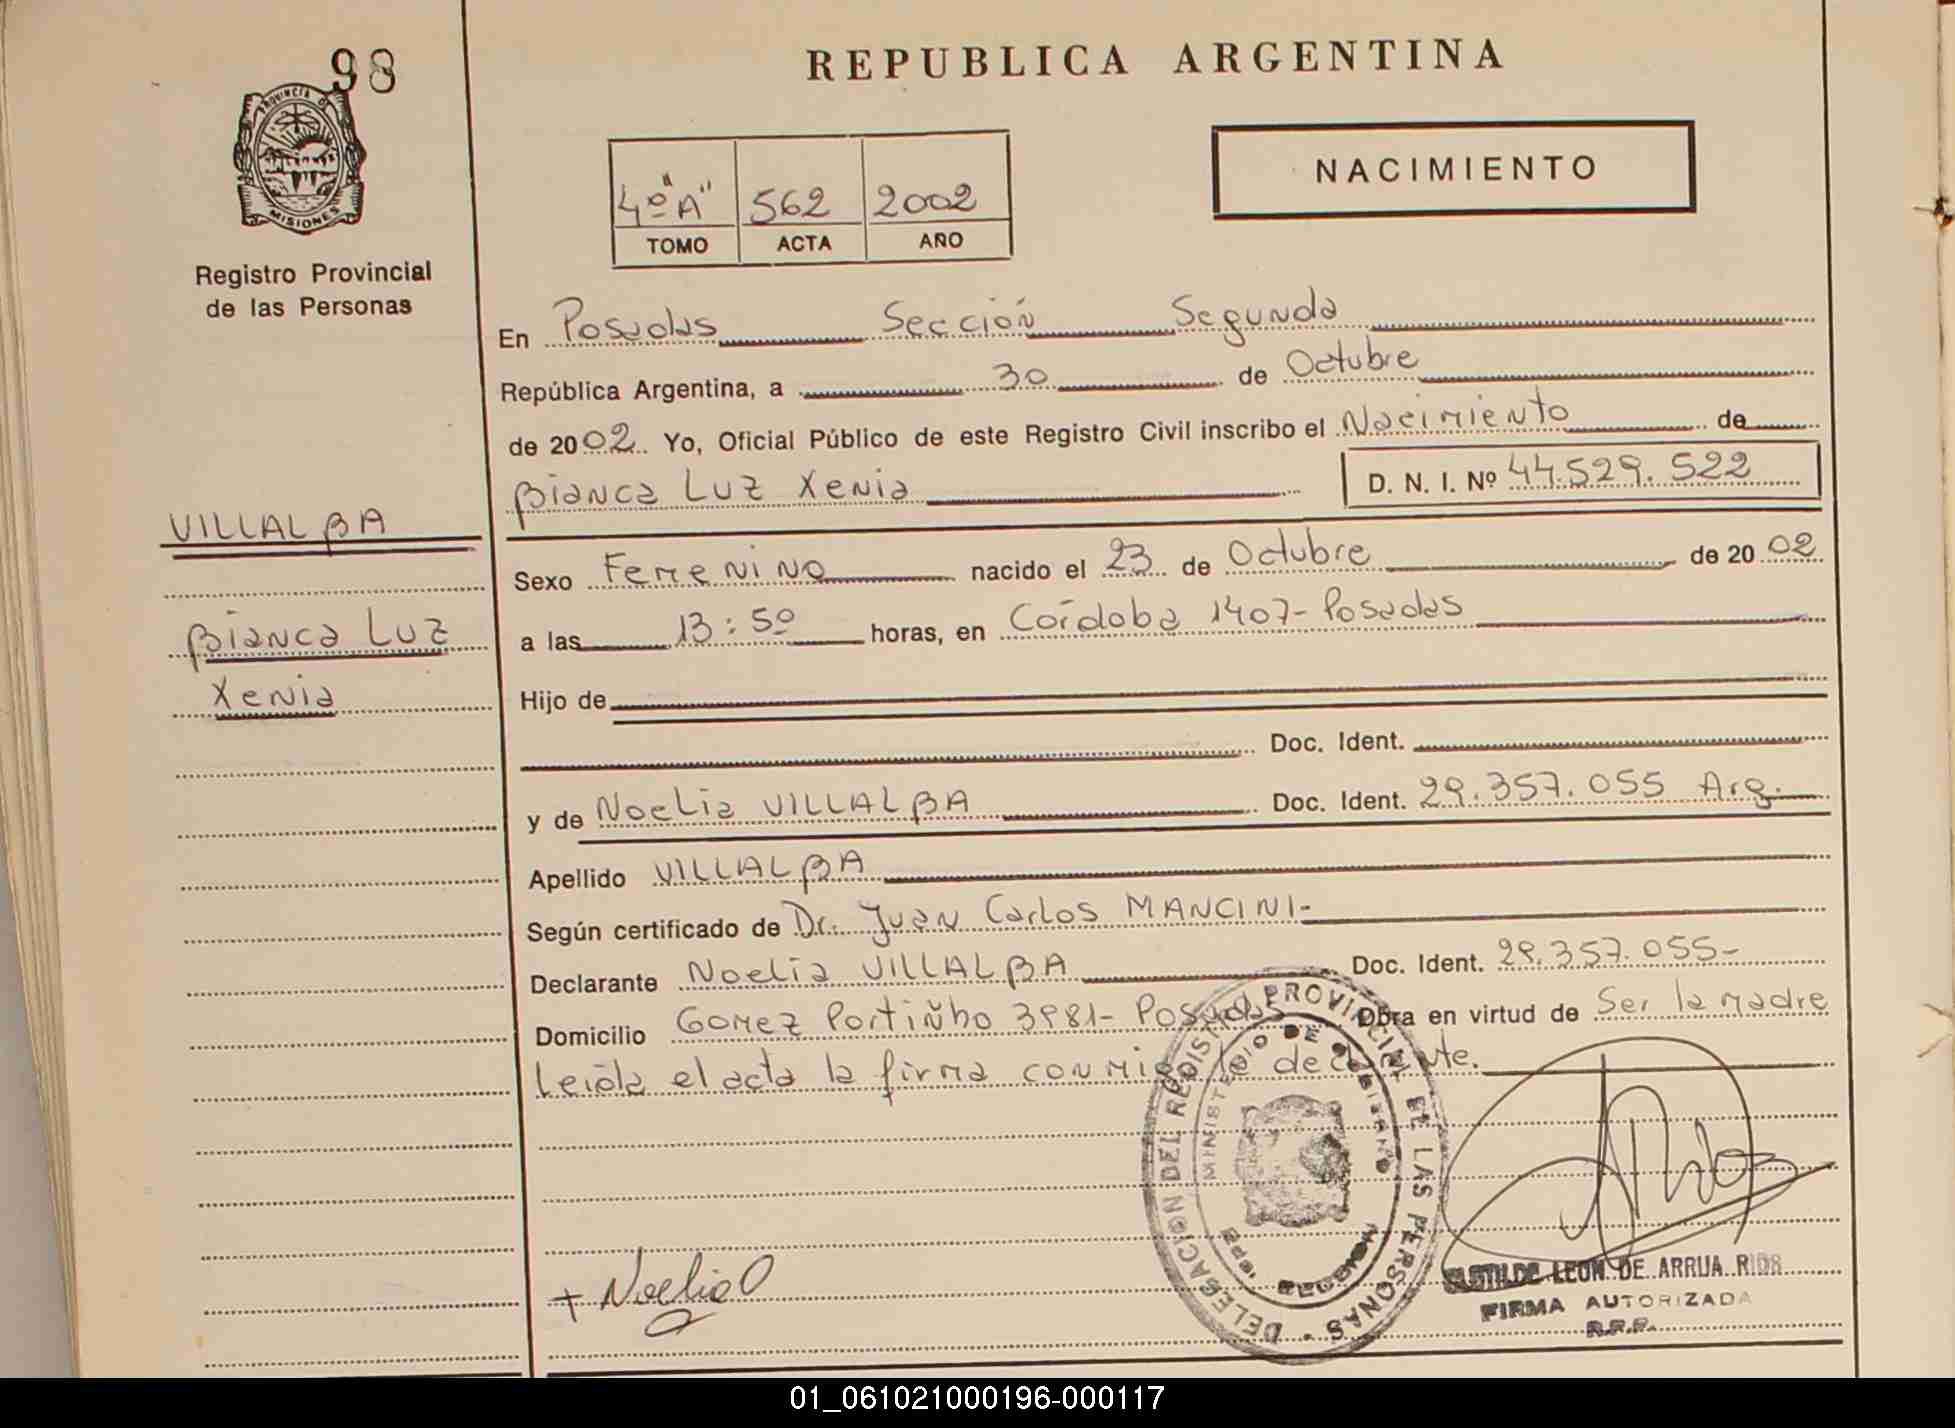 98
PROVINCIA DE
MISIONES
Registro Provincial
de las Personas
REPUBLICA ARGENTINA
4º "A" 562 2002
TOMO ACTA AÑO
NACIMIENTO
En Posadas Sección Segunda
República Argentina, a 30 de Octubre
de 2002. Yo, Oficial Público de este Registro Civil inscribo el Nacimiento de
Bianca Luz Xenia D. N. I. Nº 44.529.522
VILLALBA
Bianca Luz
Xenia
Sexo Femenino nacido el 23 de Octubre de 2002
a las 13:50 horas, en Córdoba 1407-Posadas
Hijo de
Doc. Ident.
y de Noelia VILLALBA Doc. Ident. 29.357.055 Arg.
Apellido VILLALBA
Según certificado de Dr. Juan Carlos MANCINI-
Declarante Noelia VILLALBA Doc. Ident. 29.357.055-
Domicilio Gomez Portiñho 3981- Posadas Obra en virtud de Ser la madre
Leída el acta la firma conmigo la declarante.
DELEGACION DEL REGISTRO PROVINCIAL DE LAS PERSONAS
MINISTERIO DE GOBIERNO
+ Noelia
LEON DE ARRUA RIOS
FIRMA AUTORIZADA
R.P.P.
01_061021000196-000117